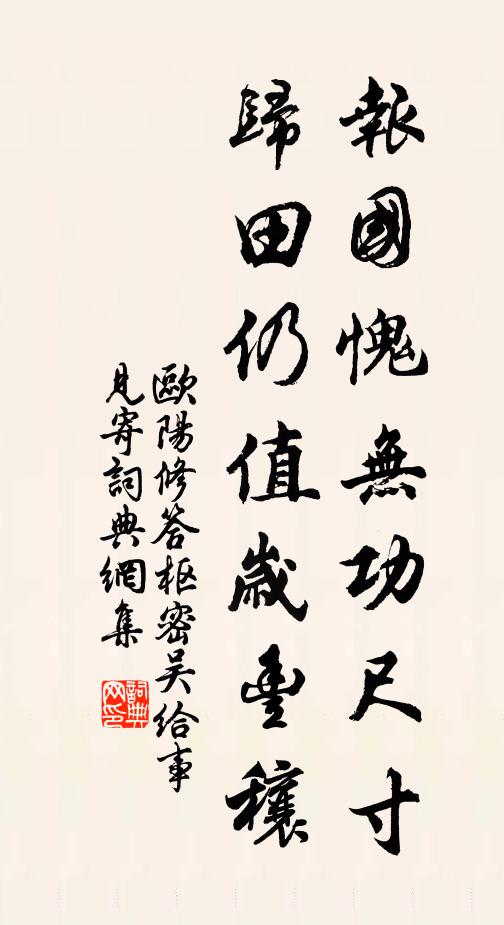 報國愧無功尺寸
歸田仍值歲豐穰
歐陽修答枢密吴给事
見寄詞典網集
詞典网印